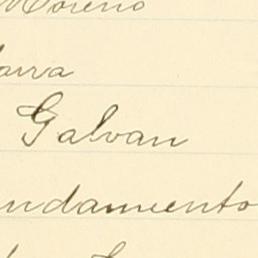 Moreno
arra
Galvan
ndamiento